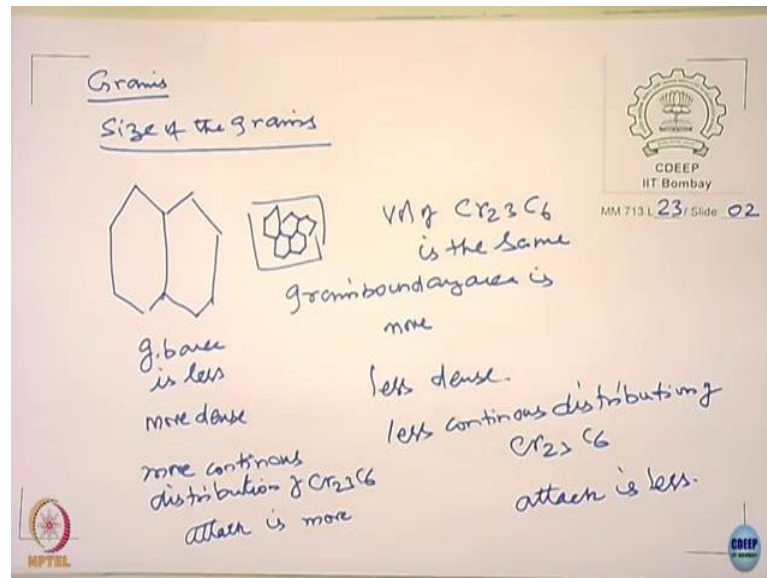 Grains
Size of the grains
CDEEP
IIT Bombay
MM 713 L 23 / Slide 02
Vol of Cr23C6
is the same
grain boundary area is
more
g.b area
is less
more dense
more continous
distribution of Cr23C6
attack is more
less dense.
less continous distribution of
Cr23 C6
attack is less.
NPTEL
CDEEP
IIT BOMBAY